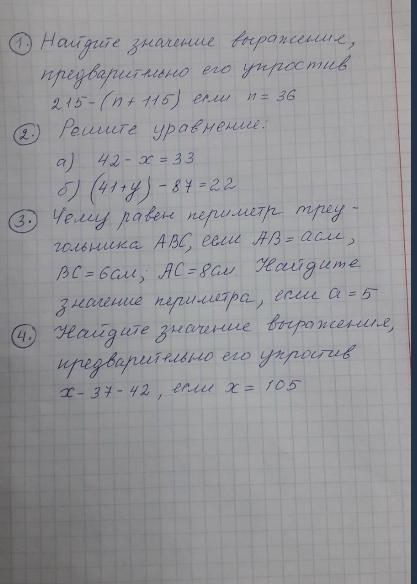 1. Найдите значение выражения,
предварительно его упростив
215-(n+115) если n=36
2. Решите уравнение:
а) 42-x=33
б) (41+y)-87=22
3. Чему равен периметр треу-
гольника ABC, если AB=aсм,
BC=6см; AC=8см Найдите
значение периметра, если a=5
4. Найдите значение выражения,
предварительно его упростив
x-37-42, если x=105